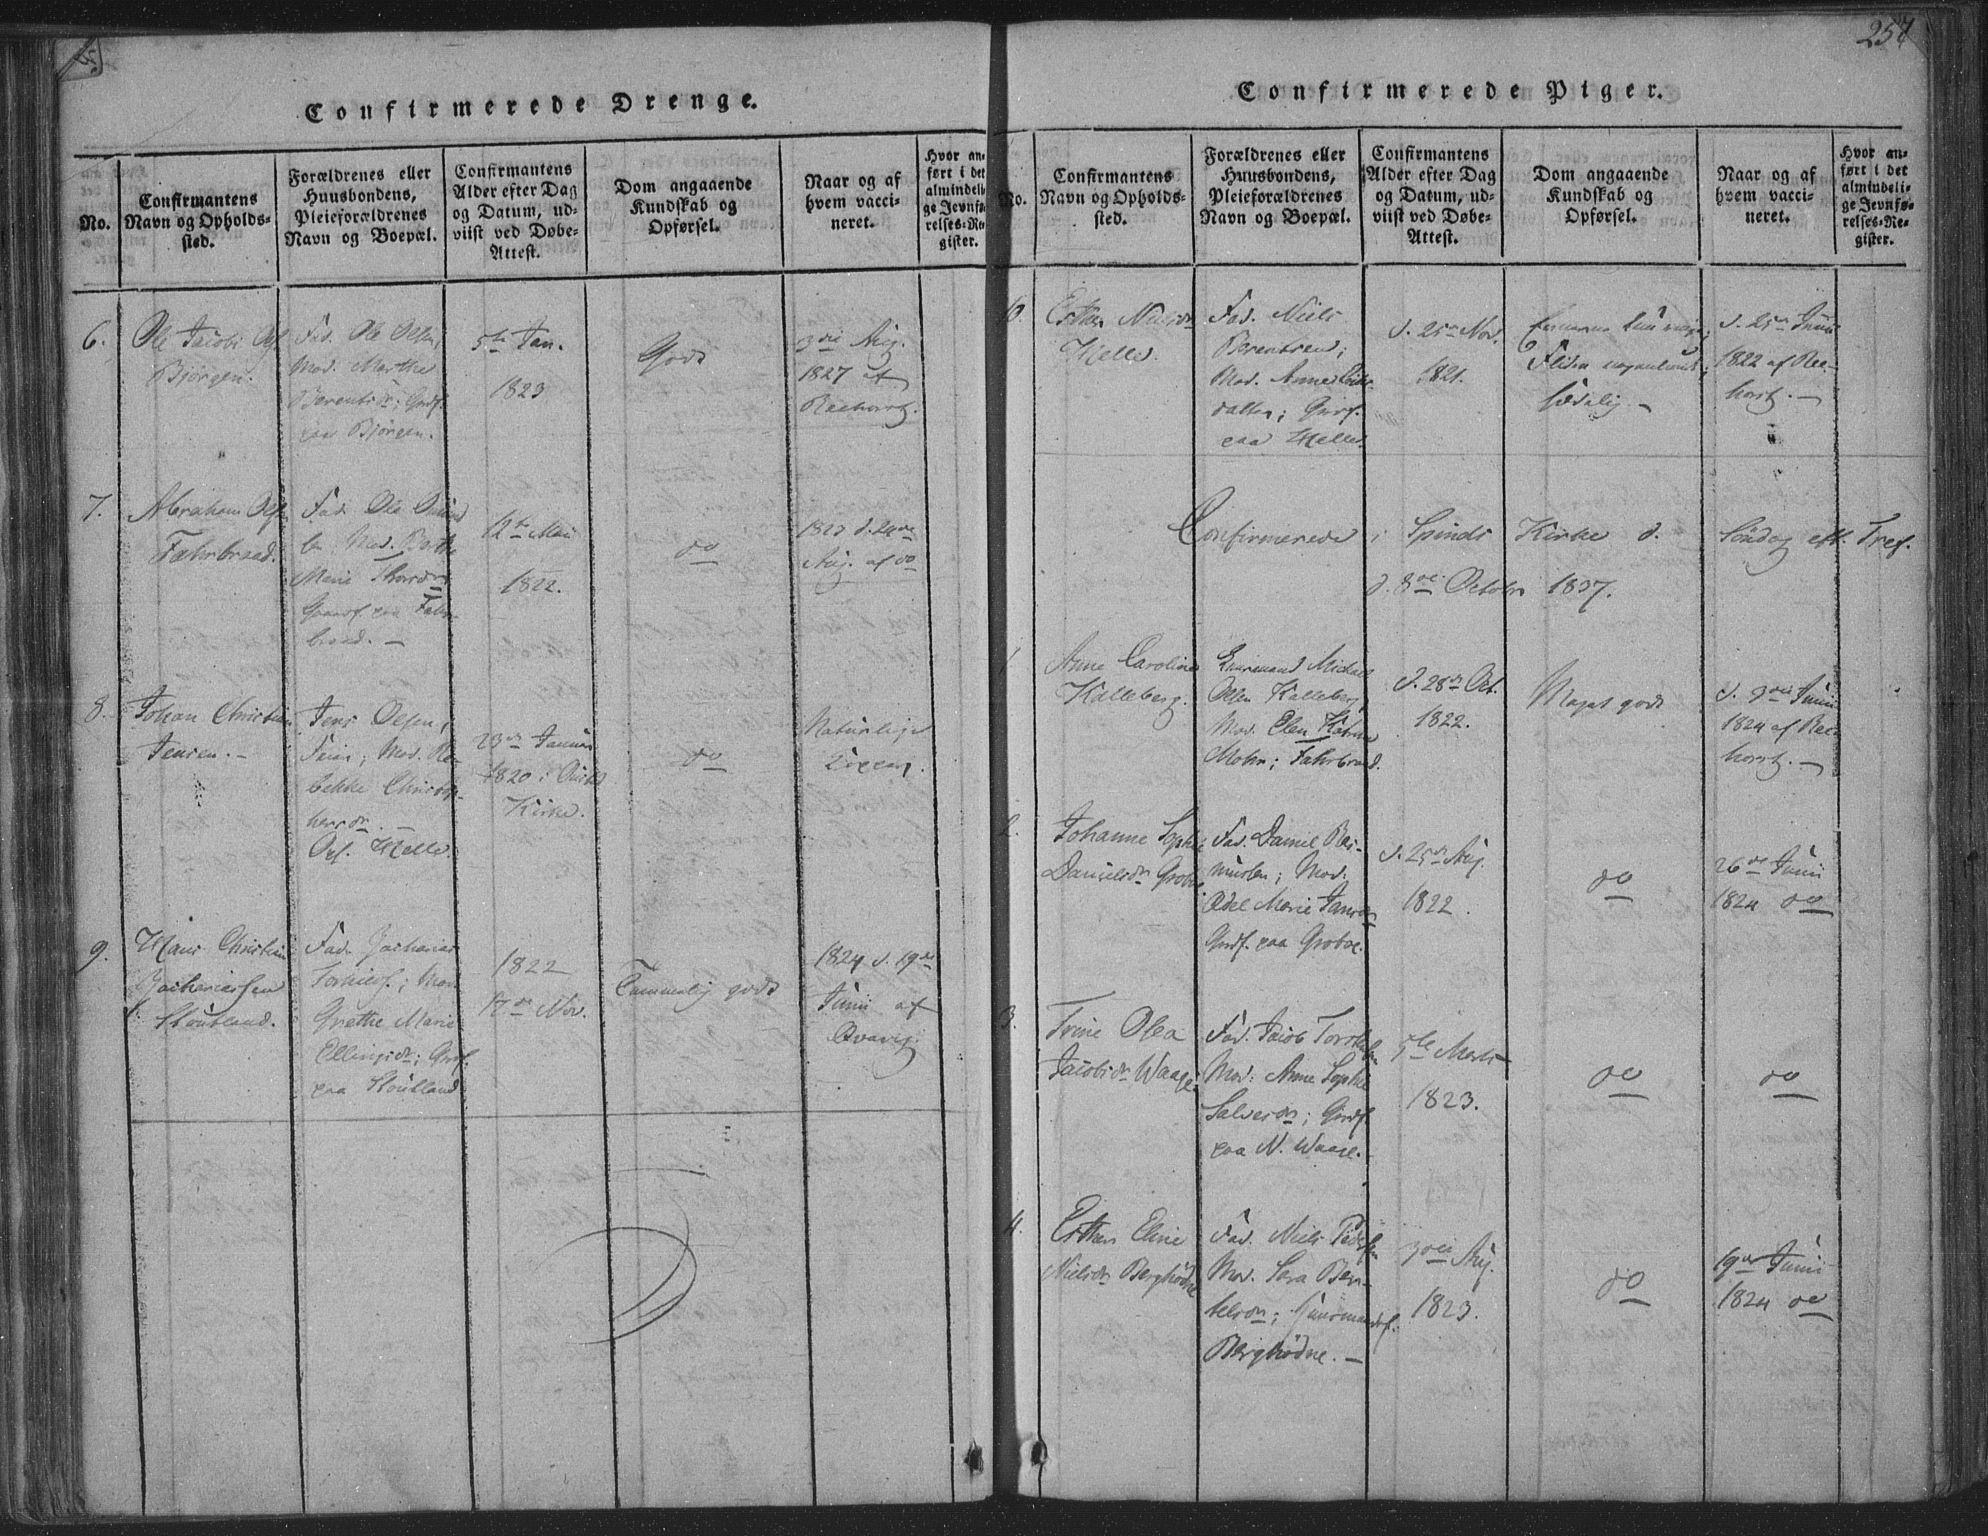 257
Confirmerede Drenge.
No.
Confirmantens
Navn og Opholds-
sted.
Forældrenes eller
Huusbondens,
Pleieforældrenes
Navn og Boepæl.
Confirmantens
Alder efter Dag
og Datum, ud-
viist ved Døbe-
Attest.
Dom angaaende
Kundskab og
Opførsel.
Naar og af
hvem vacci-
neret.
Hvor an-
ført i det
almindeli-
ge Jevnfø-
relses-Re-
gister.
6.
Ole Jacobs
Bjørgen.
Fad. Ole Olsen,
Mod. Marthe
Berentsdr; Grdf.
paa Bjørgen.
5te Jan.
1823
Godt
3die Aug.
1827 af
Reehorst.
7.
Abraham Ols
Fahrbraad.
Fad. Ole
Mod. Berthe
Marie
paa Fahr-
braad. —
12te Mai
1822.
do
1823 d. 24de
Aug. af do
8.
Johan Christian
Jensen. —
Jens Olsen,
Mod. Re-
bekke Christop-
hersdr. —
Opf. Helle.
23de Januar
1820 i
Kirke.
do
Naturlige
Kopper.
9.
Hans Christian
Zachariassen
Stoutland.
Fad. Zacharias
Torkilds.; Mod.
Grethe Marie
Ellingsdr; Grdf.
paa Stoutland
1822
17de Nov.
Temmelig godt
1824 d. 19de
Junii af
Qvarig.
Confirmerede Piger.
No.
Confirmantens
Navn og Opholds-
sted.
Forældrenes eller
Huusbondens,
Pleieforældrenes
Navn og Boepæl.
Confirmantens
Alder efter Dag
og Datum, ud-
viist ved Døbe-
Attest.
Dom angaaende
Kundskab og
Opførsel.
Naar og af
hvem vacci-
neret.
Hvor an-
ført i det
almindeli-
ge Jevnfø-
relses-Re-
gister.
10.
Esther Nielsdr
Helle.
Fad. Niels
Berentsen;
Mod. Anne
datter; Grdf.
paa Helle.
d. 25de Nov.
1821.
sædelig —
d. 25de Junii
1822 af Ree-
horst. —
Confirmerede i Spinds Kirke d. Søndag eft. Tref.
d. 8de October 1837.
1.
Anne Caroline
Kalleberg.
Michael
Olsen Kalleberg,
Mod. Elen Katrine
Mohn; Fahrbraad.
d. 28de Oct.
1822.
Meget godt
d. 3die Junii
1824 af Ree-
horst. —
2.
Johanne Sophie
Danielsdr Grobae
Fad. Daniel Ras-
mussen; Mod.
Adel Marie Jansdr
Grdf. paa Grobae.
d. 25de Aug.
1822.
do
26de Junii
1824 do
3.
Trine Olea
Jacobsdr Waage
Fad. Jacob Torkelsen
Mod. Anne Sophie
Salvesdr; Grdf.
paa N. Waage.
5te Marts
1823.
do
do
4.
Esther Eline
Nielsdr Berghødne
Fad. Niels Peders
Mod. Sara Ber-
telsdr; Huusmandsf.
Berghødne. —
3die Aug.
1823.
do
19de Junii
1824 do